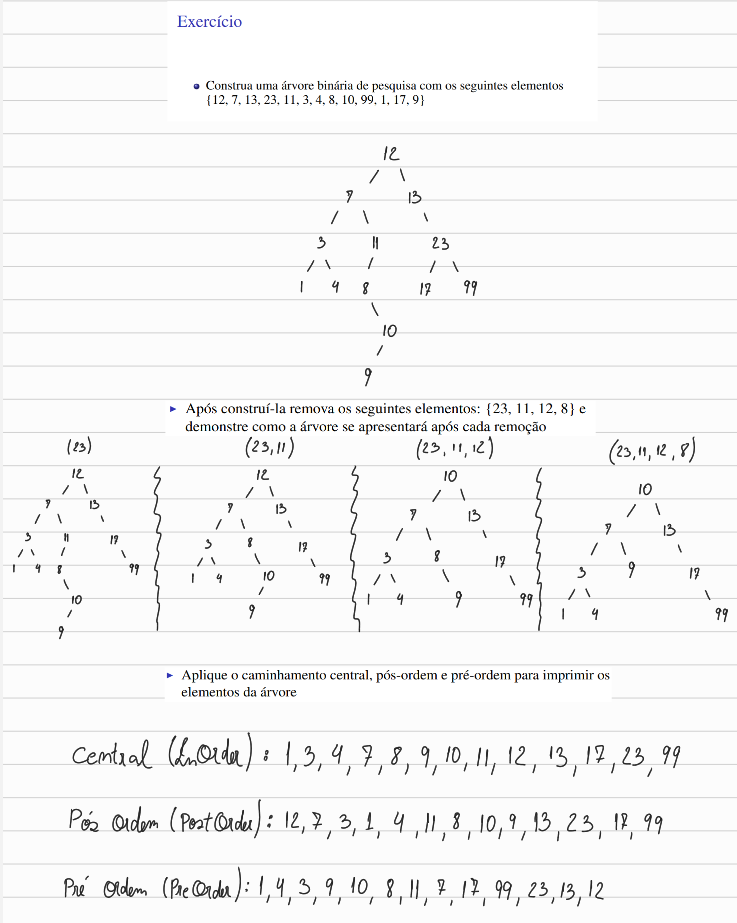 Exercício
Construa uma árvore binária de pesquisa com os seguintes elementos
{12, 7, 13, 23, 11, 3, 4, 8, 10, 99, 1, 17, 9}
12
7 13
3 11 23
1 4 8 17 99
10
9
Após construí-la remova os seguintes elementos: {23, 11, 12, 8} e
demonstre como a árvore se apresentará após cada remoção
(23)
12
7 13
3 11 17
1 4 8 99
10
9
(23,11)
12
7 13
3 8 17
1 4 10 99
9
(23, 11, 12)
10
7 13
3 8 17
1 4 9 99
(23,11,12,8)
10
7 13
3 9 17
1 4 99
Aplique o caminhamento central, pós-ordem e pré-ordem para imprimir os
elementos da árvore
Central (InOrder): 1, 3, 4, 7, 8, 9, 10, 11, 12, 13, 17, 23, 99
Pós Ordem (PostOrder): 12, 7, 3, 1, 4, 11, 8, 10, 9, 13, 23, 17, 99
Pré Ordem (PreOrder): 1, 4, 3, 9, 10, 8, 11, 7, 17, 99, 23, 13, 12